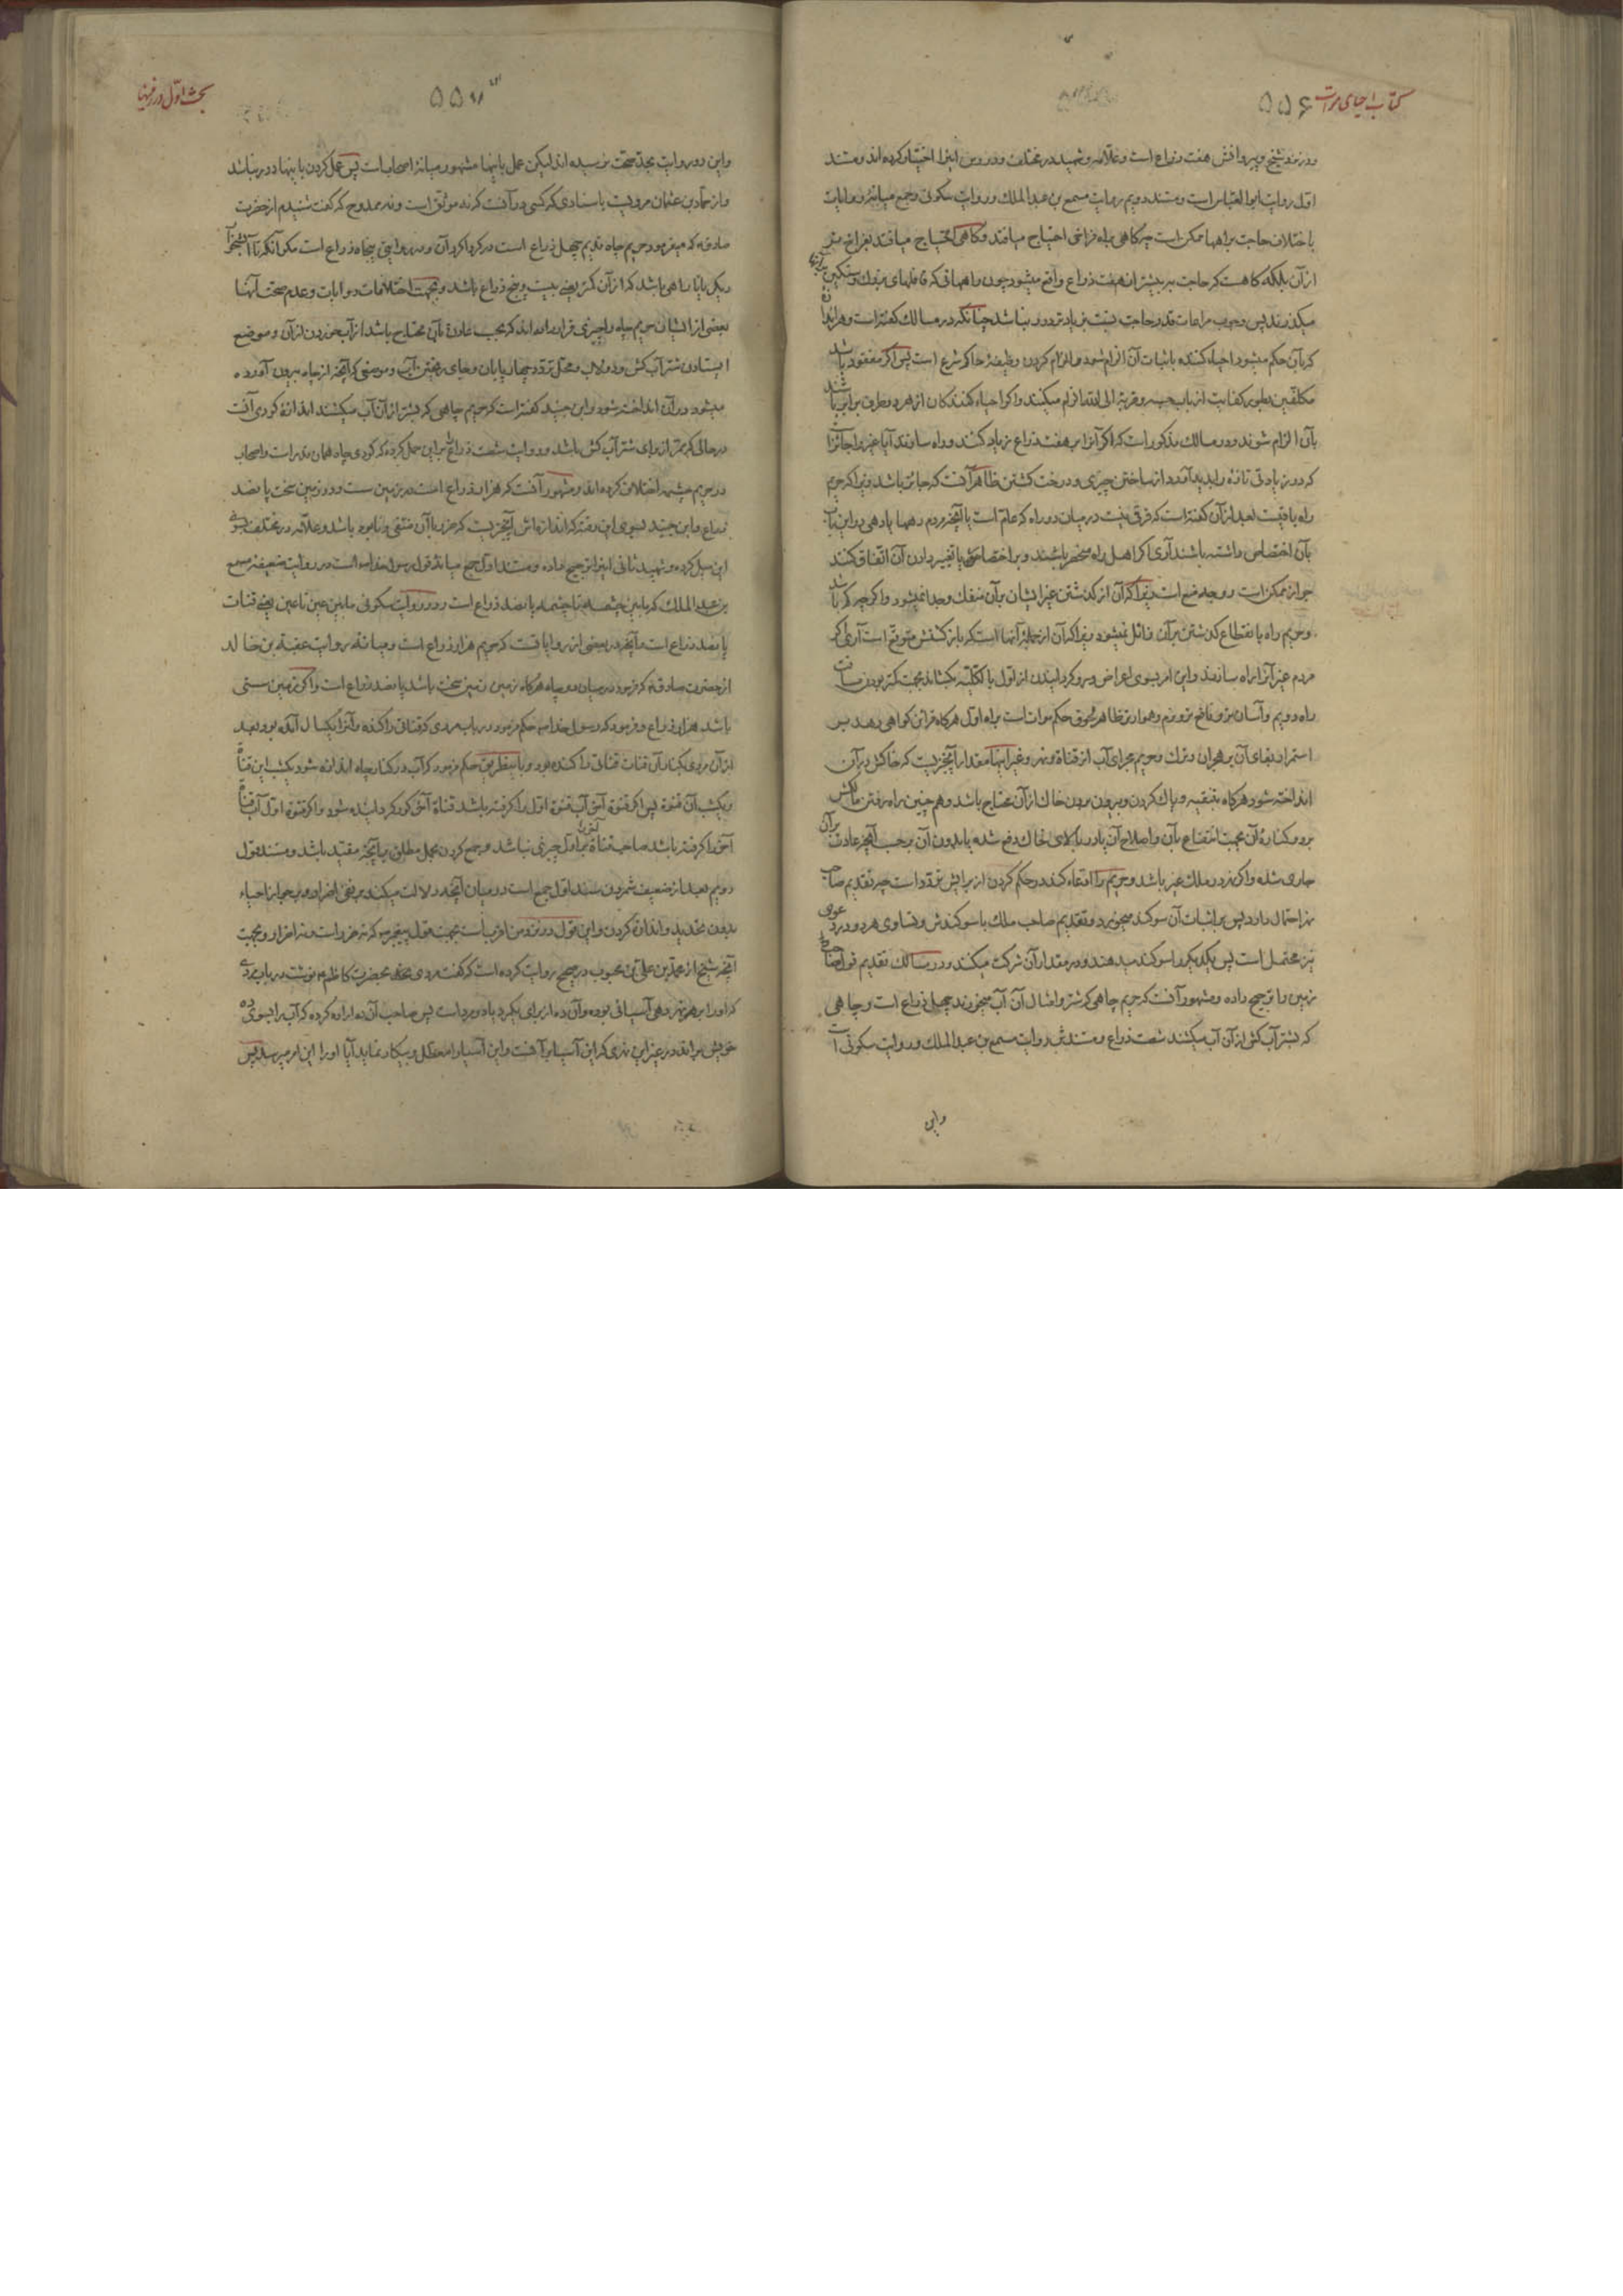 کتاب احیای موات ۵۵۶
ودر نزد شیخ و پیروانش هفت ذراع است و علامه و شهید در مختلف و دروس اینرا اختیار کرده اند و مستند
اول روایت ابو العباس است و مستند دویم روایت مسمع بن عبد الملک و روایت سکونی و جمع میانه روایات
باختلاف حاجت براهها ممکن است چه کاهی براه فراخی احتیاج میافتد و کاهی احتیاج میافتد بفراخ تر
از آن بلکه کاهست که حاجت به بیشتر از هفت ذراع واقع میشود چون راههائی که قافلهای بزرک و سنکین
میکذرند پس وجوب مراعات قدر حاجت نیست زیادتر دور نباشد چنانکه در مسالک کفته است و هرانرا
که بآن حکم میشود احیاء کننده باثبات آن الزام شود و الزام کردن وظیفهٔ حاکم شرع است پس اکر مفقود باشد
مکلفین بطور کفایت از باب حسبه و قربة الی الله الزام میکنند و اکر احیاء کنندکان از هر دو طرف برابر باشند
بآن الزام شوند و در مسالک مذکور است که اکر آنرا بر هفت ذراع زیاد کنند و راه سازند آیا غیر را جائز است
که در زیادتی تازه را پدید آورد از ساختن چیزی و درخت کشتن ظاهر آنست که جائز باشد زیرا که حریم
راه باقیست بعد از آن کفته است که فرقی نیست در میان دو راه که عام است یا آنچه مردم دهها یا دهی در این باب
بآن اختصاص داشته باشند آری اکر اهل راه منحصر باشند و بر اختصاص یا تغییر دادن آن اتفاق کنند
جواز ممکن است و وجه منع است زیرا که آن از کذشتن غیر ایشان بر آن منفک وجدا نمیشود و اکر چه کم باشد
و حریم راه بانقطاع کذشتن بر آن زائل نمیشود زیرا که آن از جمله آنها است که بازکشتش متوقع است آری اکر
مردم غیر آنرا راه سازند و این امر بسوی اعراض و رو کردانیدن از اول بالکلیه بکشاند بجهت کمتر بودن مسافت
راه دویم و آسان تر و نافع تر و نرم و هموارتر ظاهر لحوق حکم موات است براه اول هرکاه قرائن کواهی دهد بر
استمرار بقای آن بر هجران و ترک و حریم مجرای آب از قناة و نهر و غیر اینها مقدار آنچیزیست که خاکش در آن
انداخته شود هرکاه بتنقیه و پاک کردن و بیرون بردن خاک از آن محتاج باشد و هم چنین راه رفتن مالکش
بر دو کنارهٔ آن بجهت انتفاع بآن و اصلاح آن یا در بالای خاک دفع شده یا بدون آن بحسب آنچه عادت بر آن
جاری شده و اکر نهر در ملک غیر باشد و حریم را ادعاء کند در حکم کردن از برایش تردد است چه تقدیم صاحب
نهر احتمال دارد پس بر اثبات آن سوکند میخورد و تقدیم صاحب ملک با سوکندش و تساوی هر دو در دعوی
نیز محتمل است پس یکدیکر را سوکند میدهند و در مقدار آن شرکت میکنند و در مسالک تقدیم قول صاحب
زمین را ترجیح داده و مشهور آنست که حریم چاهی که شتر و امثال آن آب میخورند چهل ذراع است و چاهی
که بشتر آب کش از آن آب میکشند شصت ذراع و مستندش روایت مسمع بن عبد الملک و روایت سکونی است
و این
۵۵۷
بحث اول در زمینها
و این دو روایت بحد صحت نرسیده اند لیکن عمل باینها مشهور میانهٔ اصحابست پس عمل کردن باینها دور نباشد
و از حماد بن عثمان مرویست باسنادی که کسی در آنست که نه موثق است و نه ممدوح که کفت شنیدم از حضرت
صادق ع که میفرمود حریم چاه قدیم چهل ذراع است در کرداکرد آن و در روایتی پنجاه ذراع است مکر آنکه تا
یکی یا تا راهی باشد که از آن کمتر یعنی بیست و پنج ذراع باشد و بجهت اختلافات روایات و عدم صحت آنها
بعضی از ایشان حریم چاه را چیزی قرار داده اند که بحسب عادت بآن محتاج باشد از آب خوردن از آن و موضع
ایستادن شتر آب کش و دولاب و محل تردد چهار پایان و جای ریختن آب و موضعی که آنچه از چاه بیرون آورده
میشود در آن انداخته شود و ابن جنید کفته است که حریم چاهی که بشتر از آن آب میکشند اندازه کودی آنست
در حالی که ممر از برای شتر آب کش باشد و روایت شصت ذراع را بر این حمل کرده که کودی چاه همان قدر است و اصحاب
در حریم چشمه اختلاف کرده اند و مشهور آنست که هزار ذراع است در زمین سست و در زمین سخت پانصد
ذراع و ابن جنید بسوی این رفته که اندازه اش آنچیزیست که ضرر با آن منتفی و نابود باشد و علامه در مختلف بسوی
این میل کرده و شهید ثانی اینرا ترجیح داده و مستند اول جمع میانهٔ قول رسول خداست در روایت ضعیفه مسمع
بن عبد الملک که ما بین چشمه تا چشمه پانصد ذراع است و در روایت سکونی ما بین عین تا عین یعنی قنات
پانصد ذراع است و آنچه در بعضی از روایاتست که حریم هزار ذراع است و میانهٔ روایت عقبة بن خالد
از حضرت صادق ع که فرمود در میان دو چاه هرکاه زمین زمین سخت باشد پانصد ذراع است و اکر زمین سستی
باشد هزار ذراع و فرمود که رسول خدا ص حکم فرمود در باب مردی که قناتی را کنده و آنرا یکسال آمده بود بعد
از آن مردی بکنار آن قنات قناتی را کنده بود و باینطریق حکم فرمود که آب در کنار چاه اندازه شود یکشب این قناة
و یکشب آن قنوة پس اکر قنوة آخر آب قنوة اول را کرفته باشد قناة آخر کور کردانیده شود و اکر قنوة اول آب قناة
آخر را کرفته باشد صاحب قناة آخری بر اول چیزی نباشد و جمع کردن بحمل مطلق بر آنچه مقید باشد و مستند قول
دویم بعد از ضعیف شمردن سند اول جمع است در میان آنچه دلالت میکند بر نفی اضرار و بر جواز احیاء
بدون تحدید و اندازه کردن و این قول در نزد من اقربست بجهت قول پیغمبر ص که نه ضرر است و نه اضرار و بجهت
آنچه شیخ از محمد بن علی بن محبوب در صحیح روایت کرده است که کفت مردی بحضرت کاظم ع نوشت در باب مردی
که او را بر نهر دهی آسیائی بوده و آن ده از برای یکمرد یا دو مرد است پس صاحب آن ده اراده کرده که آب را بسوی ده
خویش براند در غیر این نهری که این آسیا بر آنست و این آسیا را معطل و بیکار نماید آیا او را این امر میرسد پس